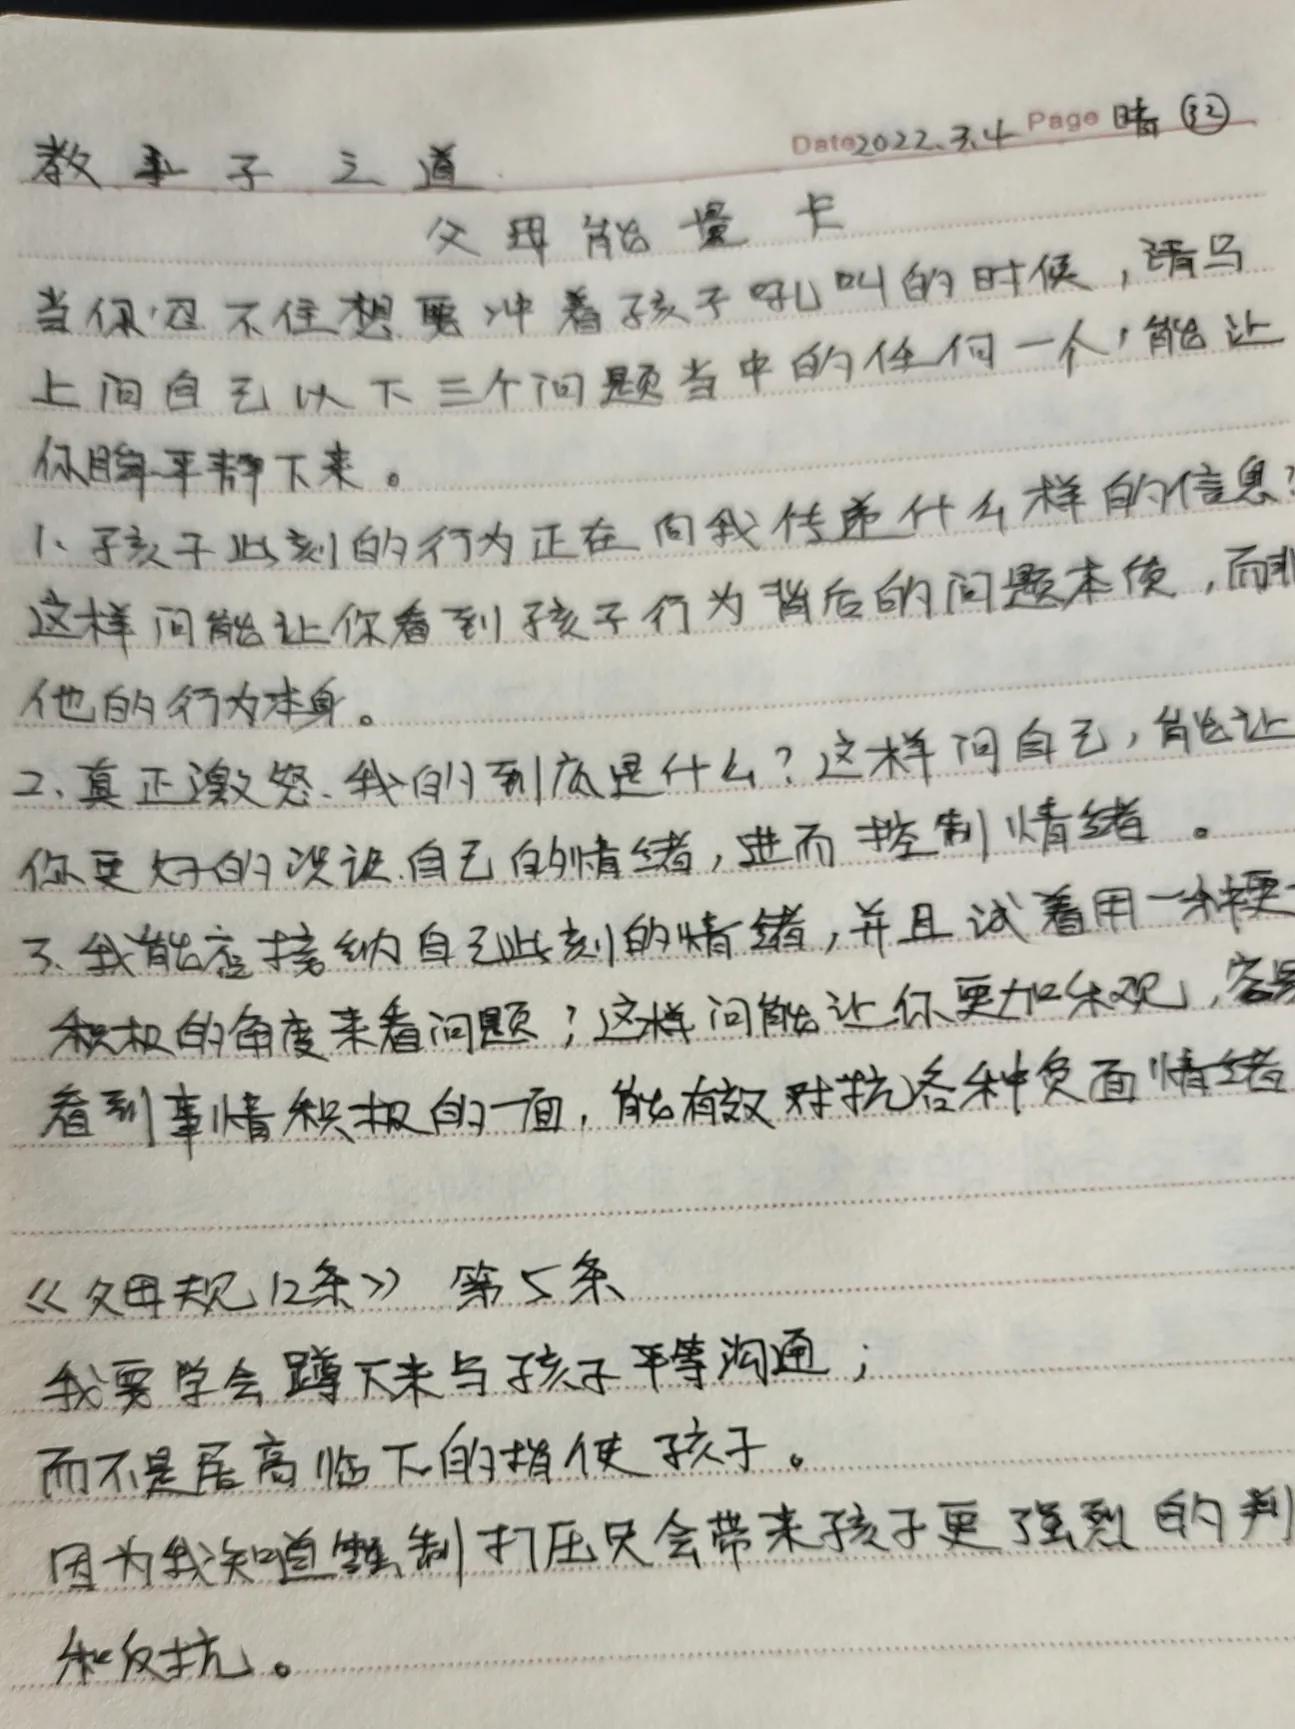 Date 2022.3.4 Page 晴 32
教子之道
父母能量卡
当你忍不住想要冲着孩子吼叫的时候，请马
上问自己以下三个问题当中的任何一个，能让
你瞬平静下来。
1、孩子此刻的行为正在向我传递什么样的信息？
这样问能让你看到孩子行为背后的问题本质，而非
他的行为本身。
2、真正激怒我的到底是什么？这样问自己，能让
你更好的识自己的情绪，进而控制情绪。
3、我能否接纳自己此刻的情绪，并且试着用一种更
积极的角度来看问题；这样问能让你更加乐观，容易
看到事情积极的一面，能有效对抗各种负面情绪
《父母规12条》 第5条
我要学会蹲下来与孩子平等沟通；
而不是居高临下的指使孩子。
因为我知道强制打压只会带来孩子更强烈的
和反抗。